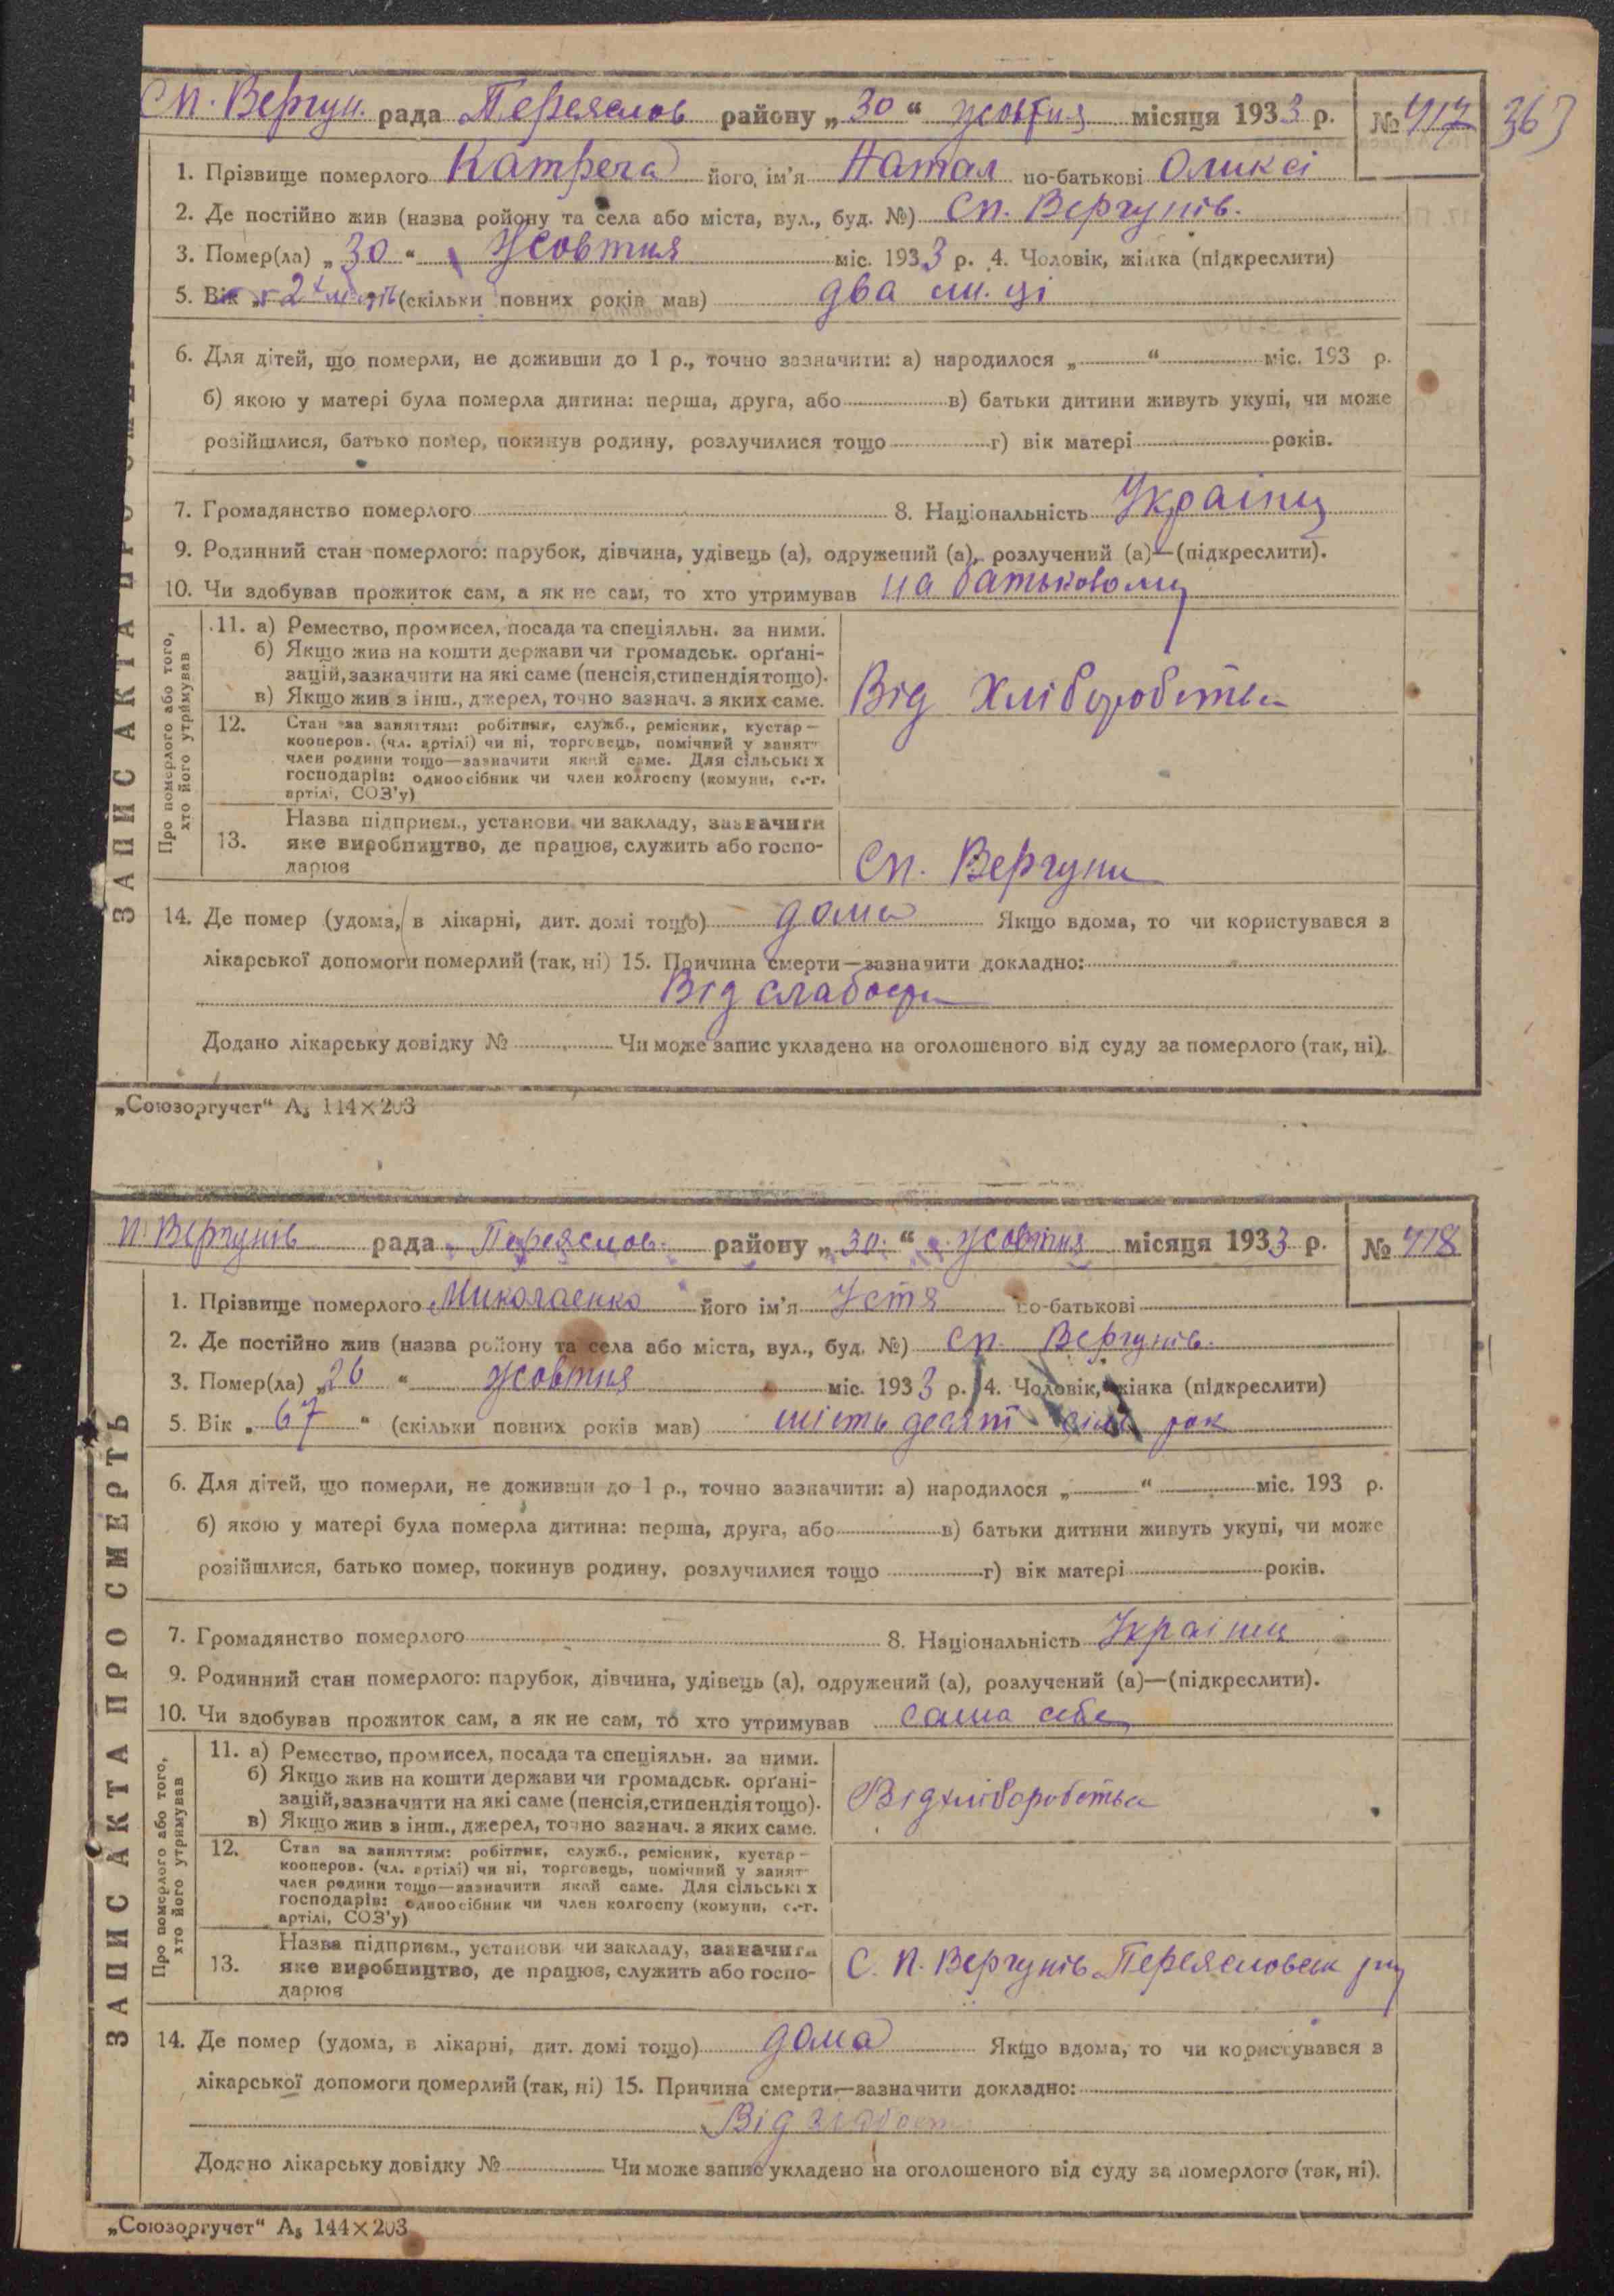 Сп. Вергун. рада Переяслов району „30“ жовтня місяця 1933 р. № 417 363
1. Прізвище померлого Катрега його, ім'я Натал по-батькові Оликсі
2. Де постійно жив (назва ройону та села або міста, вул., буд. №) Сп. Вергунів.
3. Помер(ла) „30“ Жовтня міс. 1933 р. 4. Чоловік, жінка (підкреслити)
5. Вік „2х “ (скільки повних років мав) два м. ці
6. Для дітей, що померли, не доживши до 1 р., точно зазначити: а) народилося „ “ міс. 193 р.
б) якою у матері була померла дитина: перша, друга, або в) батьки дитини живуть укупі, чи може
розійшлися, батько помер, покинув родину, розлучилися тощо г) вік матері років.
7. Громадянство померлого 8. Національність Українц
9. Родинний стан померлого: парубок, дівчина, удівець (а), одружений (а), розлучений (а)—(підкреслити).
10. Чи здобував прожиток сам, а як не сам, то хто утримував на батьковому
ЗАПИС АКТА ПРО СМЕР
Про померлого або того, хто його утримував
11. а) Ремество, промисел, посада та спеціяльн. за ними.
б) Якщо жив на кошти держави чи громадськ. орґані-
зацій, зазначити на які саме (пенсія, стипендія тощо).
в) Якщо жив з інш., джерел, точно зазнач. з яких саме.
Від Хліборобства
12. Стан за заняттям: робітник, служб., ремісник, кустар—
кооперов. (чл. артілі) чи ні, торговець, помічний у занят-
член родини тощо—зазначити який саме. Для сільськіх
господарів: одноосібник чи член колгоспу (комуни, с.-г.
артілі, СОЗ'у)
13. Назва підприєм., установи чи закладу, зазначити
яке виробництво, де працює, служить або госпо-
дарює
Сп. Вергуни
14. Де помер (удома, в лікарні, дит. домі тощо) дома Якщо вдома, то чи користувався з
лікарської допомоги померлий (так, ні) 15. Причина смерти—зазначити докладно:
Від слабости
Додано лікарську довідку № Чи може запис укладено на оголошеного від суду за померлого (так, ні).
„Союзоргучет“ А₅ 144×203
п. Вергунів рада Переяслов. району „30.“ жовтня місяця 1933 р. № 418
1. Прізвище померлого Миколаенко його ім'я Устя по-батькові
2. Де постійно жив (назва ройону та села або міста, вул., буд. №) Сп. Вергунів.
3. Помер(ла) „26“ жовтня міс. 1933 р. 4. Чоловік, жінка (підкреслити)
5. Вік „67“ (скільки повних років мав) шість десят сім рок
6. Для дітей, що померли, не доживши до 1 р., точно зазначити: а) народилося „ “ міс. 193 р.
б) якою у матері була померла дитина: перша, друга, або в) батьки дитини живуть укупі, чи може
розійшлися, батько помер, покинув родину, розлучилися тощо г) вік матері років.
7. Громадянство померлого 8. Національність Українц
9. Родинний стан померлого: парубок, дівчина, удівець (а), одружений (а), розлучений (а)—(підкреслити).
10. Чи здобував прожиток сам, а як не сам, то хто утримував сама себе
ЗАПИС АКТА ПРО СМЕРТЬ
Про померлого або того, хто його утримував
11. а) Ремество, промисел, посада та спеціяльн. за ними.
б) Якщо жив на кошти держави чи громадськ. орґані-
зацій, зазначити на які саме (пенсія, стипендія тощо).
в) Якщо жив з інш., джерел, точно зазнач. з яких саме.
Від хліборобства
12. Стан за заняттям: робітник, служб., ремісник, кустар—
кооперов. (чл. артілі) чи ні, торговець, помічний у занят-
член родини тощо—зазначити який саме. Для сільськіх
господарів: одноосібник чи член колгоспу (комуни, с.-г.
артілі, СОЗ'у)
13. Назва підприєм., установи чи закладу, зазначити
яке виробництво, де працює, служить або госпо-
дарює
С. п. Вергунів Переясловськ рну
14. Де помер (удома, в лікарні, дит. домі тощо) дома Якщо вдома, то чи користувався з
лікарської допомоги померлий (так, ні) 15. Причина смерти—зазначити докладно:
Від слабост
Додано лікарську довідку № Чи може запис укладено на оголошеного від суду за померлого (так, ні).
„Союзоргучет“ А₅ 144×203